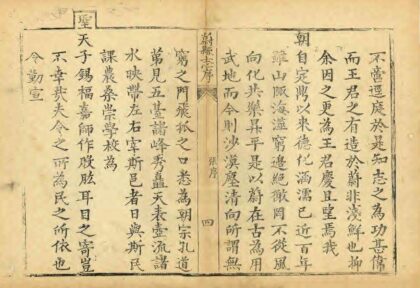 不啻逕庭於是知志之為功甚偉
而王君之有造於蔚非淺鮮也抑
余因之更為王君慶且望焉我
朝自定鼎以來德化涵濡已近百年
雖山陬海澨窮邊絕徼罔不從風
向化共樂昇平是以蔚在古為用
武地而今則沙漠塵清向所謂無
蔚縣志序
張序
四
窮之門飛狐之口悉為朝宗孔道
第見五臺諸峰秀矗天表壺流諸
水映帶左右宰斯邑者日與斯民
課農桑崇學校為
聖天子錫福嘉師作股肱耳目之寄豈
不幸哉夫令之所為民之所依也
令勤宣